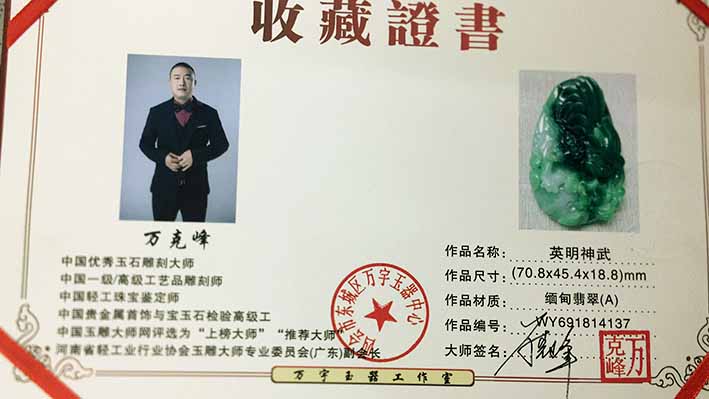 收藏證書
万克峰
中国优秀玉石雕刻大师
中国一级/高级工艺品雕刻师
中国轻工珠宝鉴定师
中国贵金属首饰与宝玉石检验高级工
中国玉雕大师网评选为“上榜大师”“推荐大师”
河南省轻工业行业协会玉雕大师专业委员会(广东)副会长
四会市东城区万宇玉器中心
作品名称: 英明神武
作品尺寸: (70.8x45.4x18.8)mm
作品材质: 缅甸翡翠(A)
作品编号: WY691814137
大师签名: 万克峰
万克峰
万宇玉器工作室